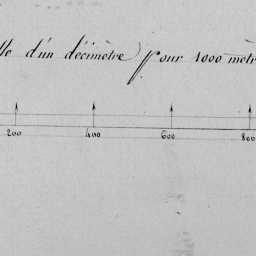 d'un décimètre pour 1000 mètr
200 400 600 800